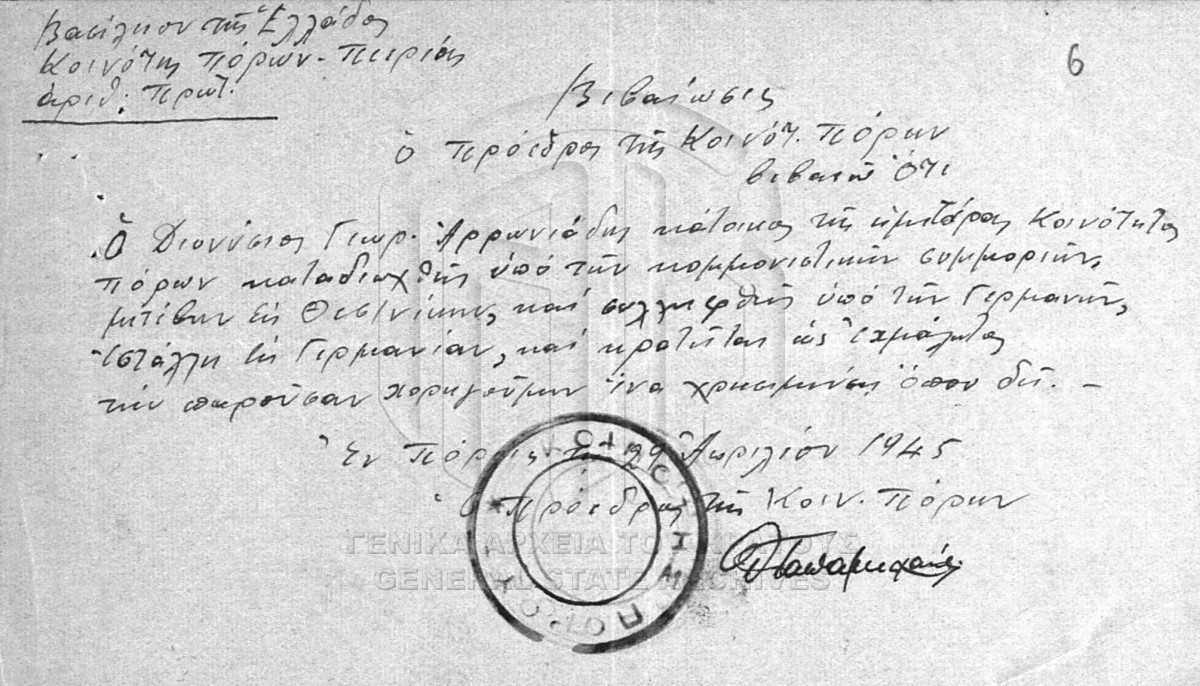 Βασίλειον τῆς Ἑλλάδος
Κοινότης Πόρων - Πιερίας
ἀριθ. Πρωτ.
6
Βεβαίωσις
Ὁ Πρόεδρος τῆς Κοινότ. Πόρων
βεβαιῶ ὅτι
Ὁ Διονύσιος Γεωρ. κάτοικος τῆς ἡμετέρας Κοινότητος
Πόρων καταδιωχθείς ὑπό τῶν κομμουνιστικῶν συμμοριῶν,
μετέβην εἰς Θεσ/νίκην, καί συλληφθείς ὑπό τῶν Γερμανῶν,
ἐστάλη εἰς Γερμανίαν, καί κρατεῖται ὡς αἰχμάλωτος
τήν παροῦσαν χορηγοῦμεν ἵνα χρησιμεύσει ὅπου δεῖ. -
Ἐν Πόροις τῇ 29 Ἀπριλίου 1945
Ὁ Πρόεδρος τῆς Κοιν. Πόρων
ΚΟΙΝΟΤΗΣ ΠΟΡΩΝ
ΓΕΝΙΚΑ ΑΡΧΕΙΑ ΤΟΥ ΚΡΑΤΟΥΣ
GENERAL STATE ARCHIVES